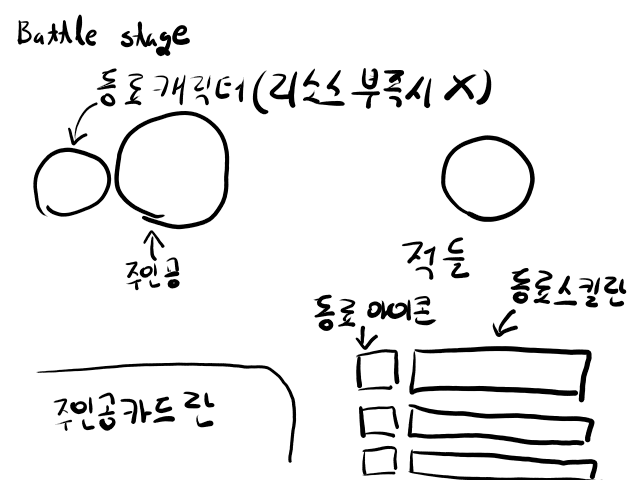 Battle stage
동료캐릭터(리소스 부족시 X)
주인공
적들
동료스킬란
동료 아이콘
주인공카드란